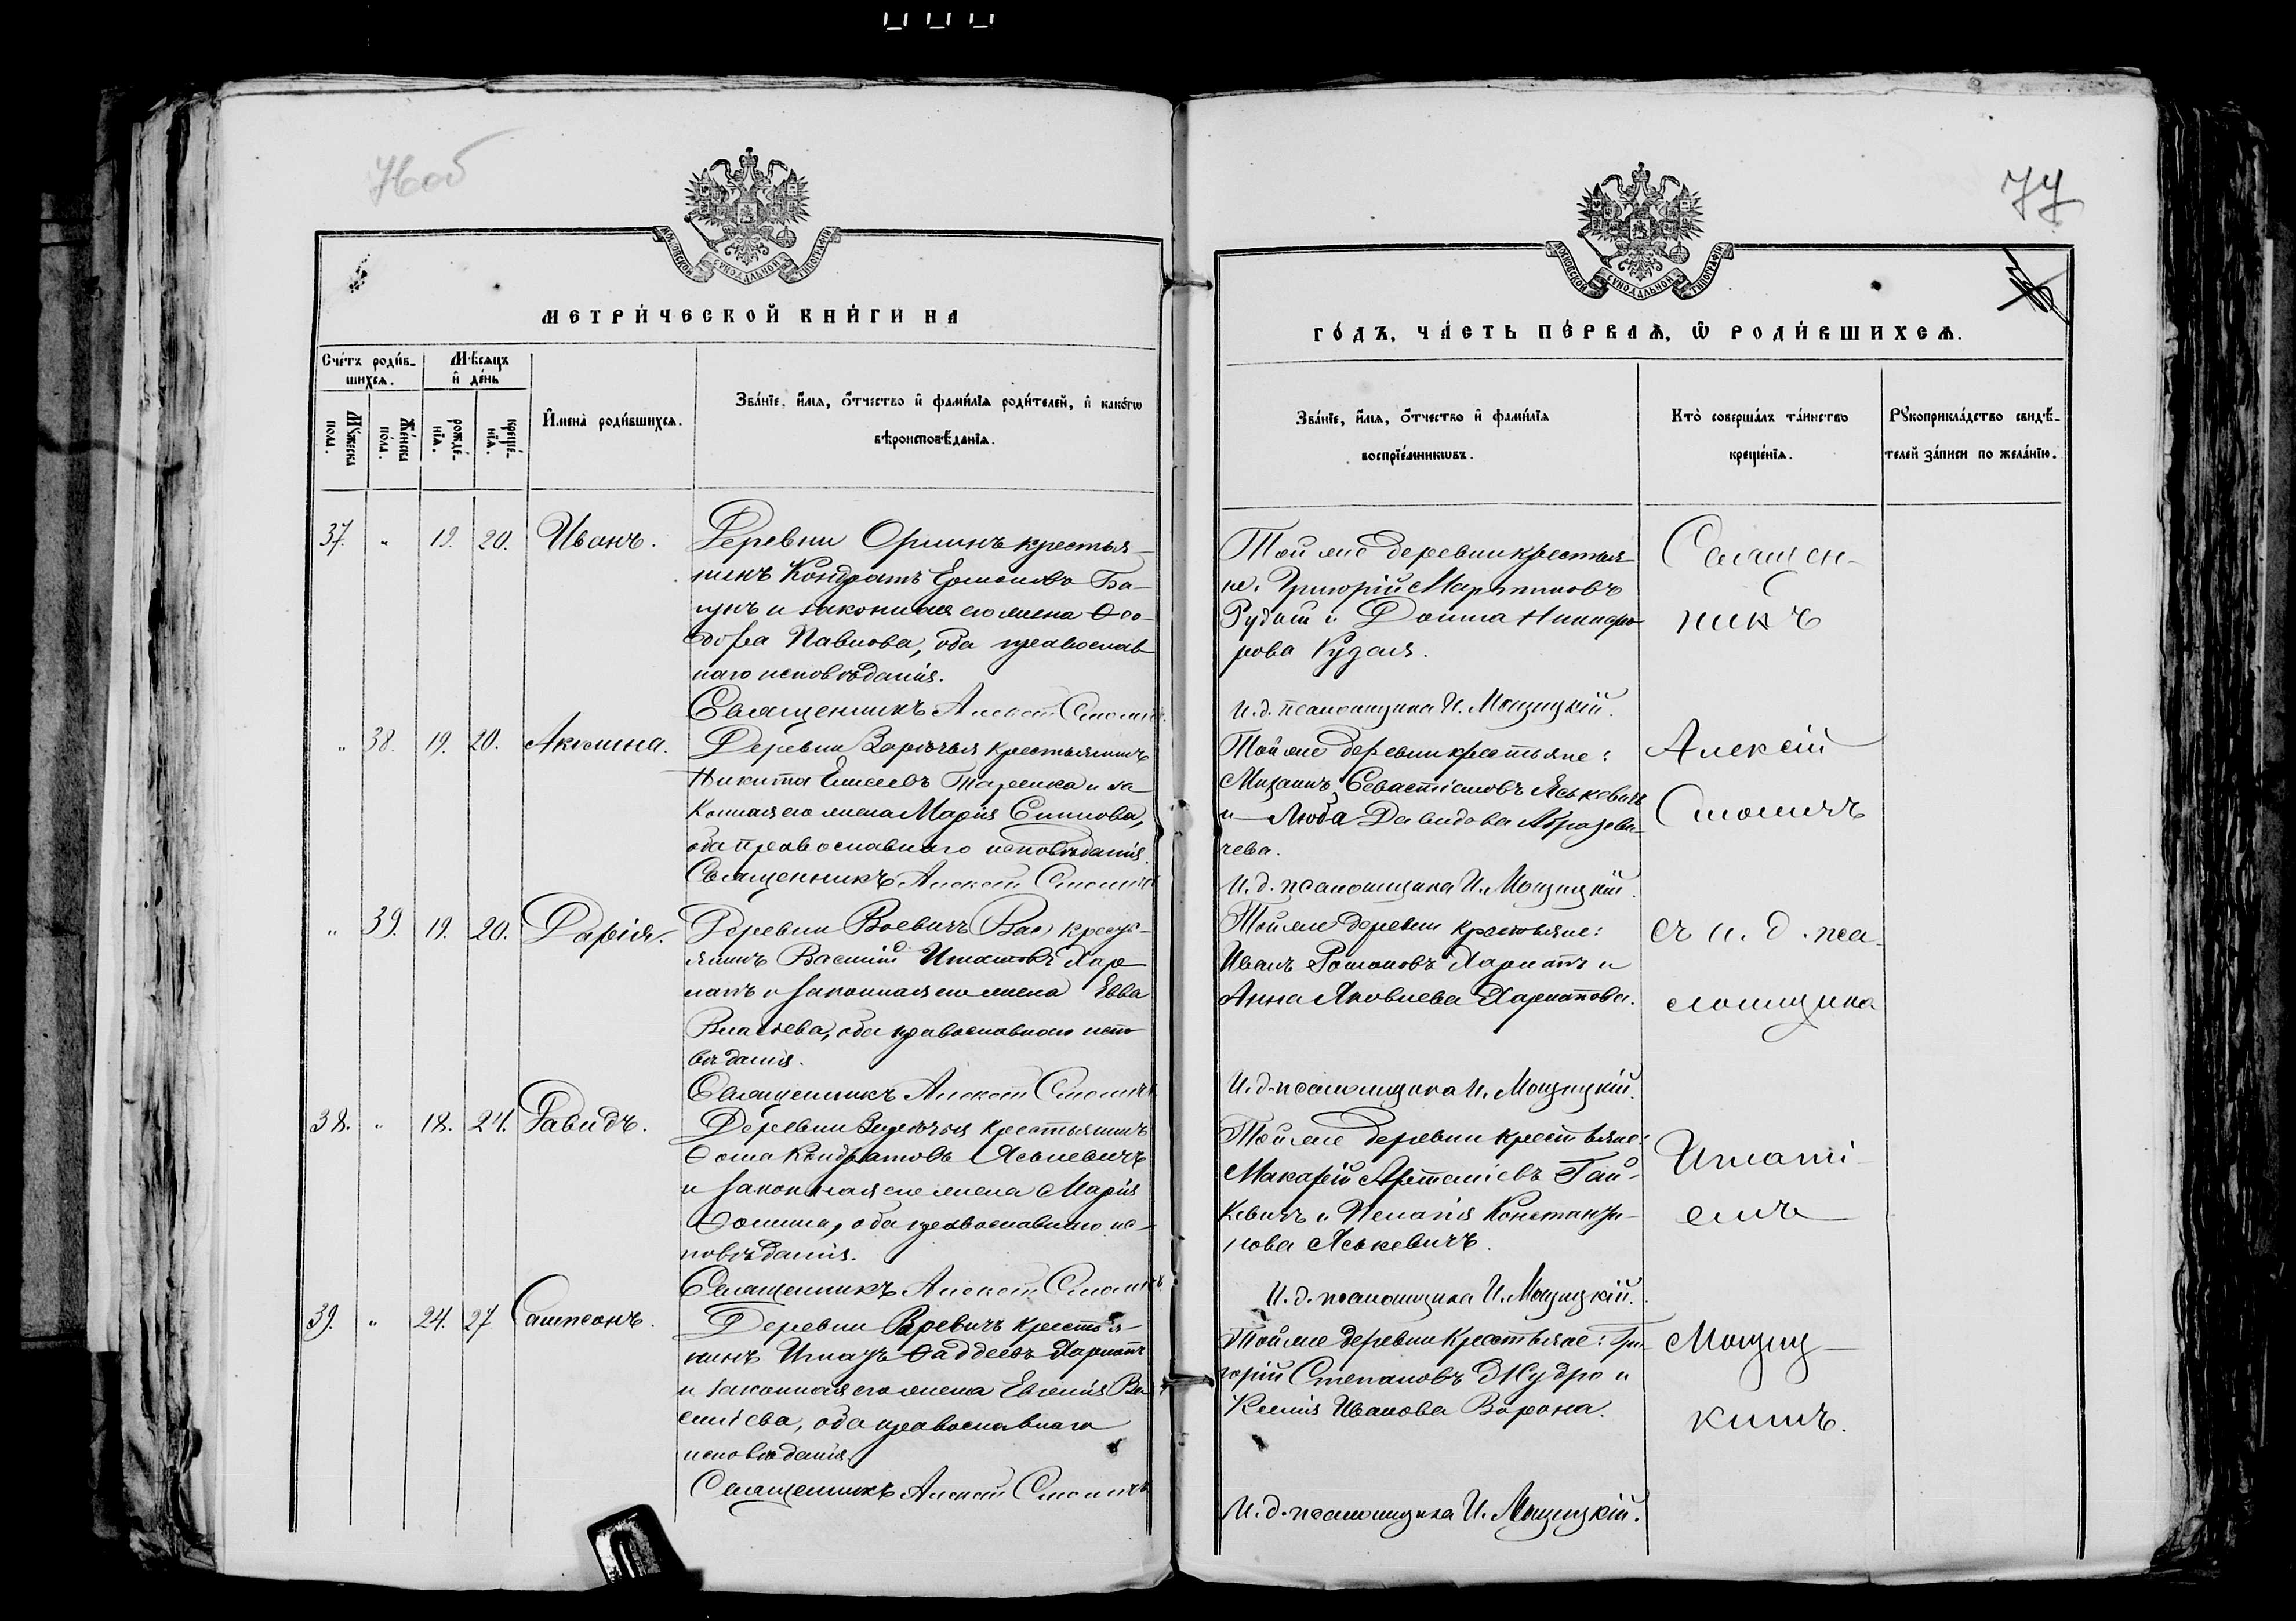 76об
МОСКОВСКОЙ СѴНОДАЛЬНОЙ ТИПОГРАФІИ
МЕТРИ́ЧЕСКОЙ КНИ́ГИ НА
Сче́тъ роди́в-
шихсѧ.
Мѣ́сѧцъ
и҆ де́нь
Мꙋ́жеска
пола.
Же́нска
по́ла.
рожде́-
нїѧ.
креще́-
нїѧ.
И҆мена̀ роди́вшихсѧ.
Зва́нїе, и҆́мѧ, ѻ҆́тчество и҆ фами́лїѧ роди́телей, и҆ како́гѡ
вѣроисповѣ́данїѧ.
37. " 19. 20. Иванъ.
Деревни Оринъ крестья-
нинъ Кондратъ Ермоловъ Ба-
гунъ и законная его жена Ѳео-
дора Павлова, оба православ
наго исповѣданія.
Священникъ Алексѣй Смоличъ.
" 38. 19. 20. Акилина.
Деревни Зарѣчья крестьянинъ
Никита Елисеевъ Тарсика и за
конная его жена Марія Симова,
оба православнаго исповѣданія.
Священникъ Алексѣй Смоличъ
" 39. 19. 20. Дарія.
Деревни Воевичъ крестья-
янинъ Василій Игнатовъ Хар
латъ и законная его жена Евва
Власьева, оба православнаго испо
вѣданія.
Священникъ Алексѣй Смоличъ
38. " 18. 24. Давидъ.
Деревни Зарѣчья крестьянинъ
Ѳома Кондратовъ Яськевичъ
и законная его жена Марія
Ѳомина, оба православнаго ис-
повѣданія.
Священникъ Алексѣй Смоличъ
39. " 24. 27 Сампсонъ.
Деревни Воевичъ крестья-
нинъ Игнатъ Ѳаддеевъ Харлатъ
и законная его жена Евгенія Ва
силіева, оба православнаго
исповѣданія
Священникъ Алексѣй Смоличъ
77
МОСКОВСКОЙ СѴНОДАЛЬНОЙ ТИПОГРАФІИ
ГО́ДЪ, ЧА́СТЬ ПЕ́РВАѦ, Ѡ҆ РОДИ́ВШИХСѦ.
Зва́нїе, и҆́мѧ, ѻ҆́тчество и҆ фами́лїѧ
воспрїе́мникѡвъ.
Кто̀ соверша́лъ та́инство
креще́нїѧ.
Рꙋкоприкла́дство свидѣ́-
телей за́писи по жела́нїю.
Той же деревни крестья
не: Григорій Мартиновъ
Рудаш и Домна Никифо
рова Кудля.
И. д. псаломщика И. Мощицкій.
Той же деревни крестьяне:
Михаилъ Севастіановъ Яськевичъ
и Люба Давидова Абразеви-
чева.
И. д. псаломщика И. Мощицкій.
Той же деревни крестьяне:
Иванъ Романовъ Харлатъ и
Анна Яковлева Харлатова.
И. д. псаломщика И. Мощицкій.
Той же деревни крестьяне:
Макарій Артеміевъ Гай-
кевичъ и Пелагія Константи-
нова Яськевичъ.
И. д. псаломщика И. Мощицкій.
Той же деревни крестьяне: Гри-
горій Степановъ Жудро и
Ксенія Иванова Ворона.
И. д. псаломщика И. Мощицкій.
Священ-
никъ
Алексій
Смоличъ
съ и. д. пса-
ломщика
Игнаті-
емъ
Мощиц-
кимъ.